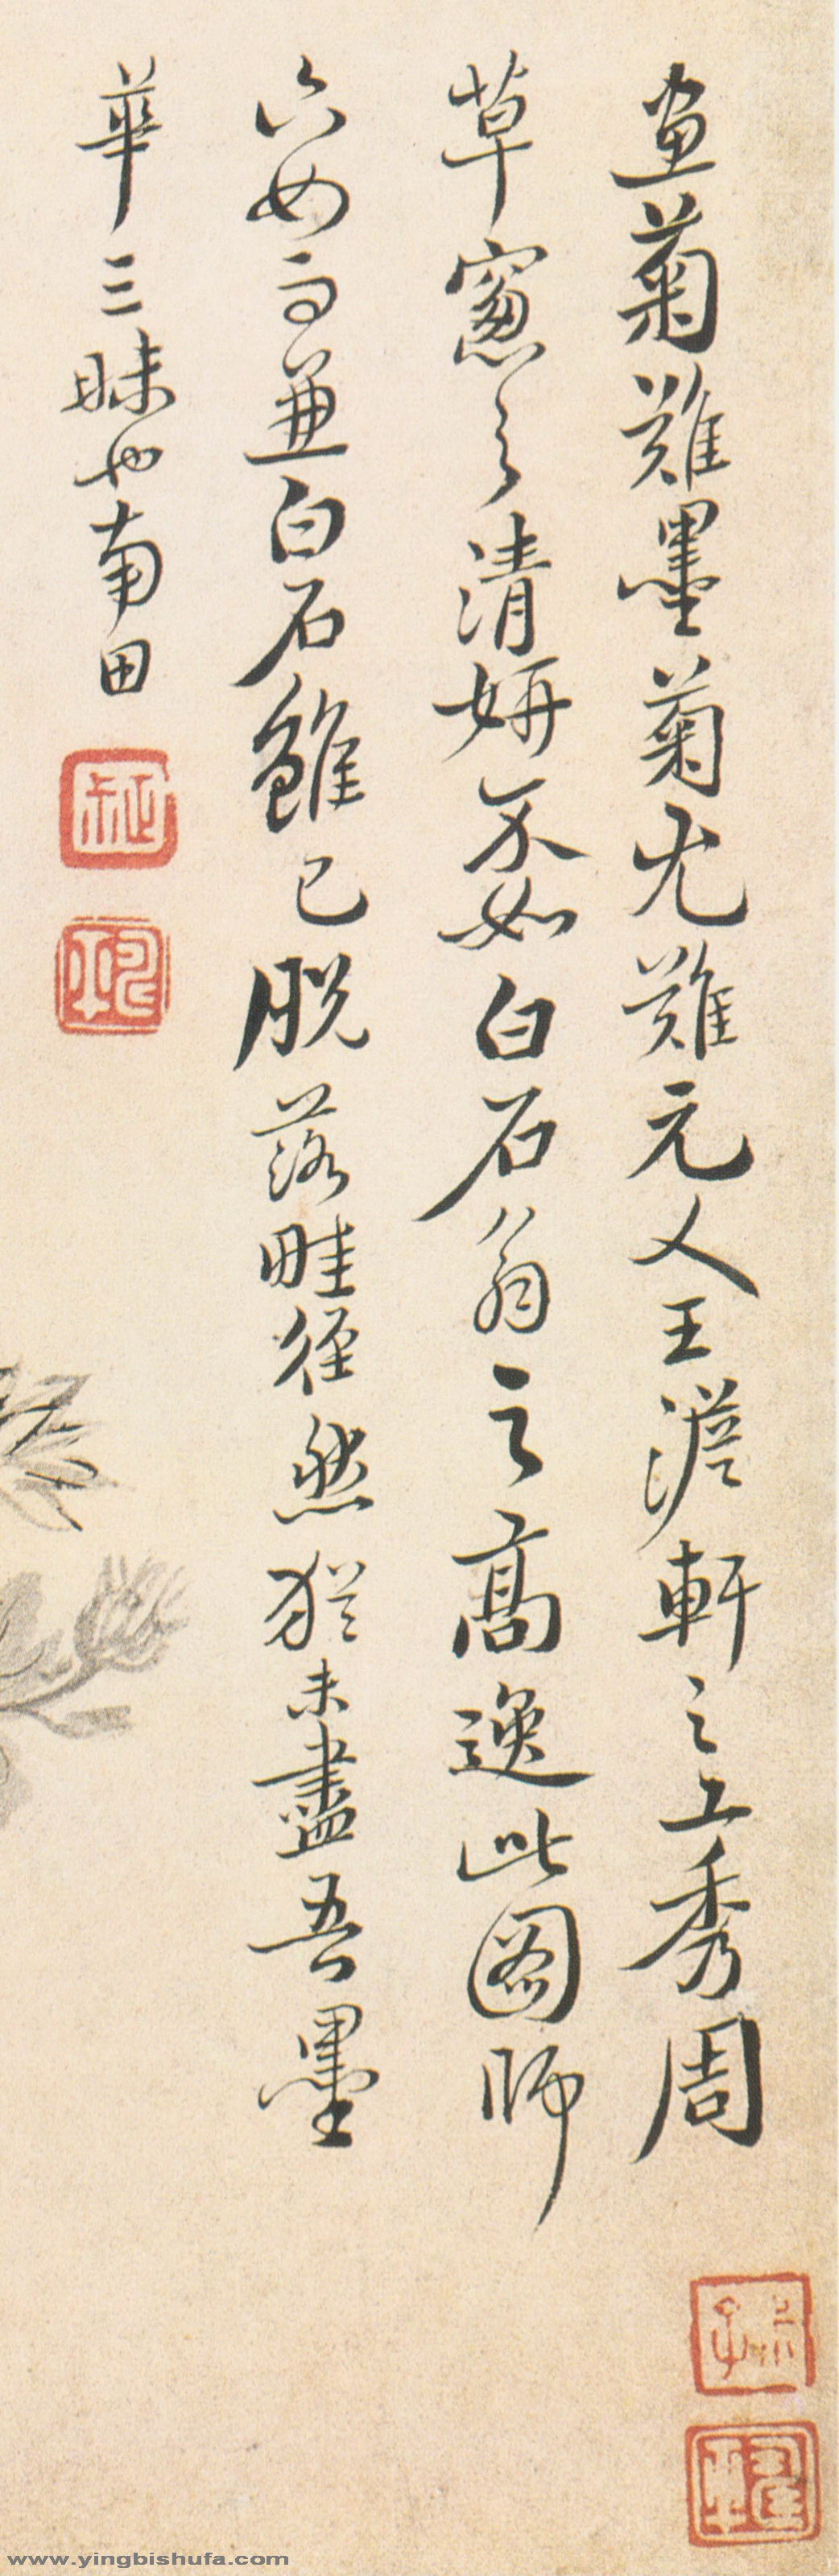 畫菊難墨菊尤難元人王澹軒之工秀周
草窻之清妍不如白石翁之高逸此圖師
六如而兼白石雖已脱落畦徑然猶未盡吾墨
華三昧也南田
www.yingbishufa.com